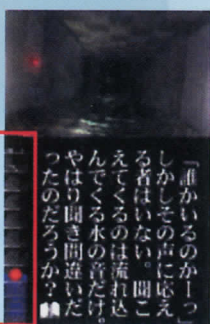 「誰かいるのかーっ」
しかしその声に応え
る者はいない。聞こ
えてくるのは流れ込
んでくる水の音だけ。
やはり聞き間違いだ
ったのだろうか?